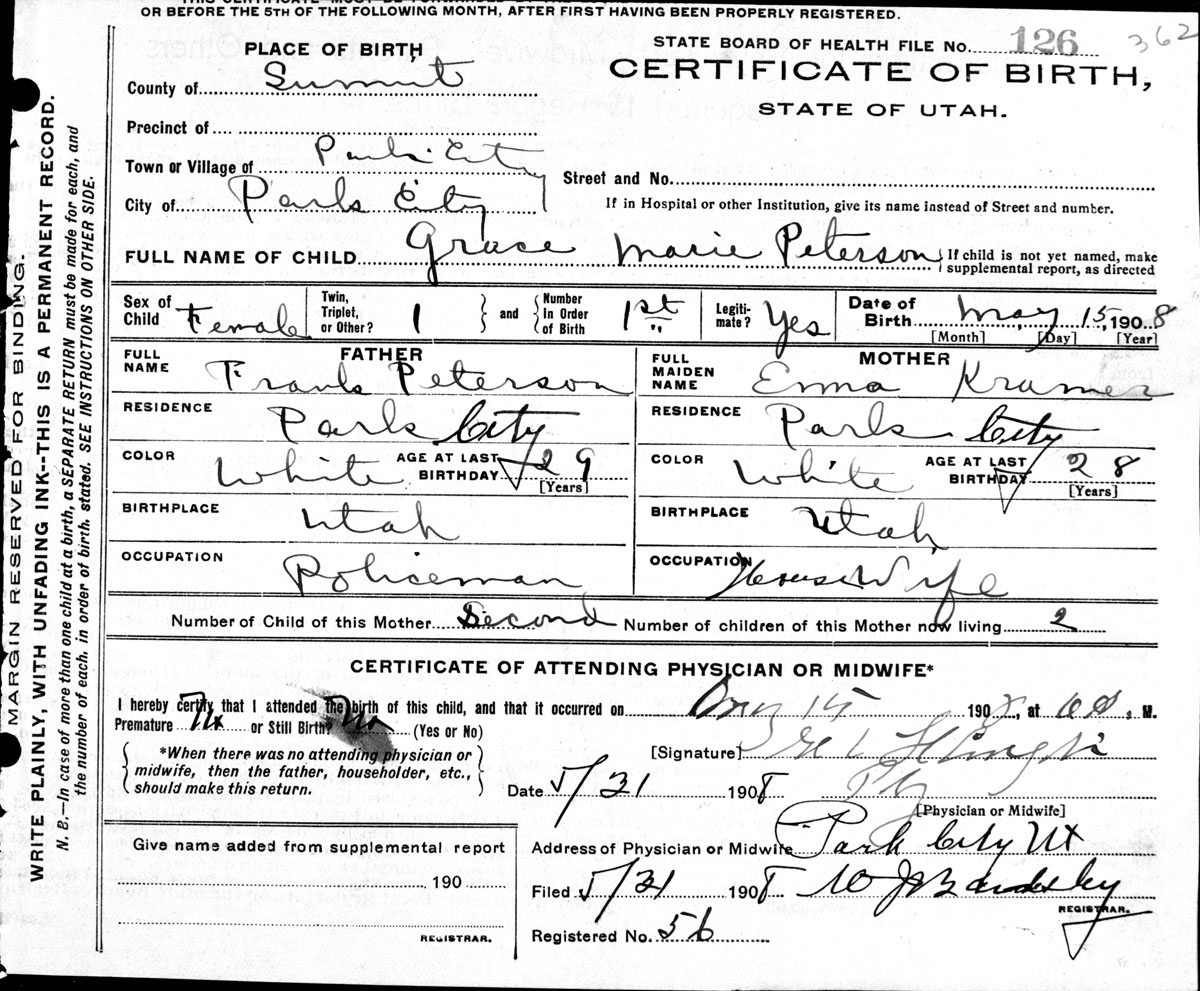 OR BEFORE THE 5TH OF THE FOLLOWING MONTH, AFTER FIRST HAVING BEEN PROPERLY REGISTERED.
MARGIN RESERVED FOR BINDING.
WRITE PLAINLY, WITH UNFADING INK--THIS IS A PERMANENT RECORD.
N. B.--In case of more than one child at a birth, a SEPARATE RETURN must be made for each, and
the number of each, in order of birth, stated. SEE INSTRUCTIONS ON OTHER SIDE.
PLACE OF BIRTH
STATE BOARD OF HEALTH FILE No. 126 362
County of Summit
CERTIFICATE OF BIRTH,
STATE OF UTAH.
Precinct of
Town or Village of Park City
Street and No.
City of Park City
If in Hospital or other Institution, give its name instead of Street and number.
FULL NAME OF CHILD Grace Marie Peterson { If child is not yet named, make
supplemental report, as directed
Sex of Child Female
Twin, Triplet, or Other? 1 } and { Number In Order of Birth 1st
Legiti-mate? Yes
Date of Birth May 15, 1908
[Month] [Day] [Year]
FATHER
FULL NAME Frank Peterson
RESIDENCE Park City
COLOR White AGE AT LAST BIRTHDAY 29 [Years]
BIRTHPLACE Utah
OCCUPATION Policeman
MOTHER
FULL MAIDEN NAME Emma Kramer
RESIDENCE Park City
COLOR White AGE AT LAST BIRTHDAY 28 [Years]
BIRTHPLACE Utah
OCCUPATION House Wife
Number of Child of this Mother Second Number of children of this Mother now living 2
CERTIFICATE OF ATTENDING PHYSICIAN OR MIDWIFE*
I hereby certify that I attended the birth of this child, and that it occurred on May 15 1908, at M.
Premature No or Still Birth? No (Yes or No)
{ *When there was no attending physician or
midwife, then the father, householder, etc.,
should make this return. }
[Signature]
Date 5/31 1908
[Physician or Midwife]
Address of Physician or Midwife Park City Ut
Filed 5/31 1908
REGISTRAR.
Registered No. 56
Give name added from supplemental report
190
REGISTRAR.